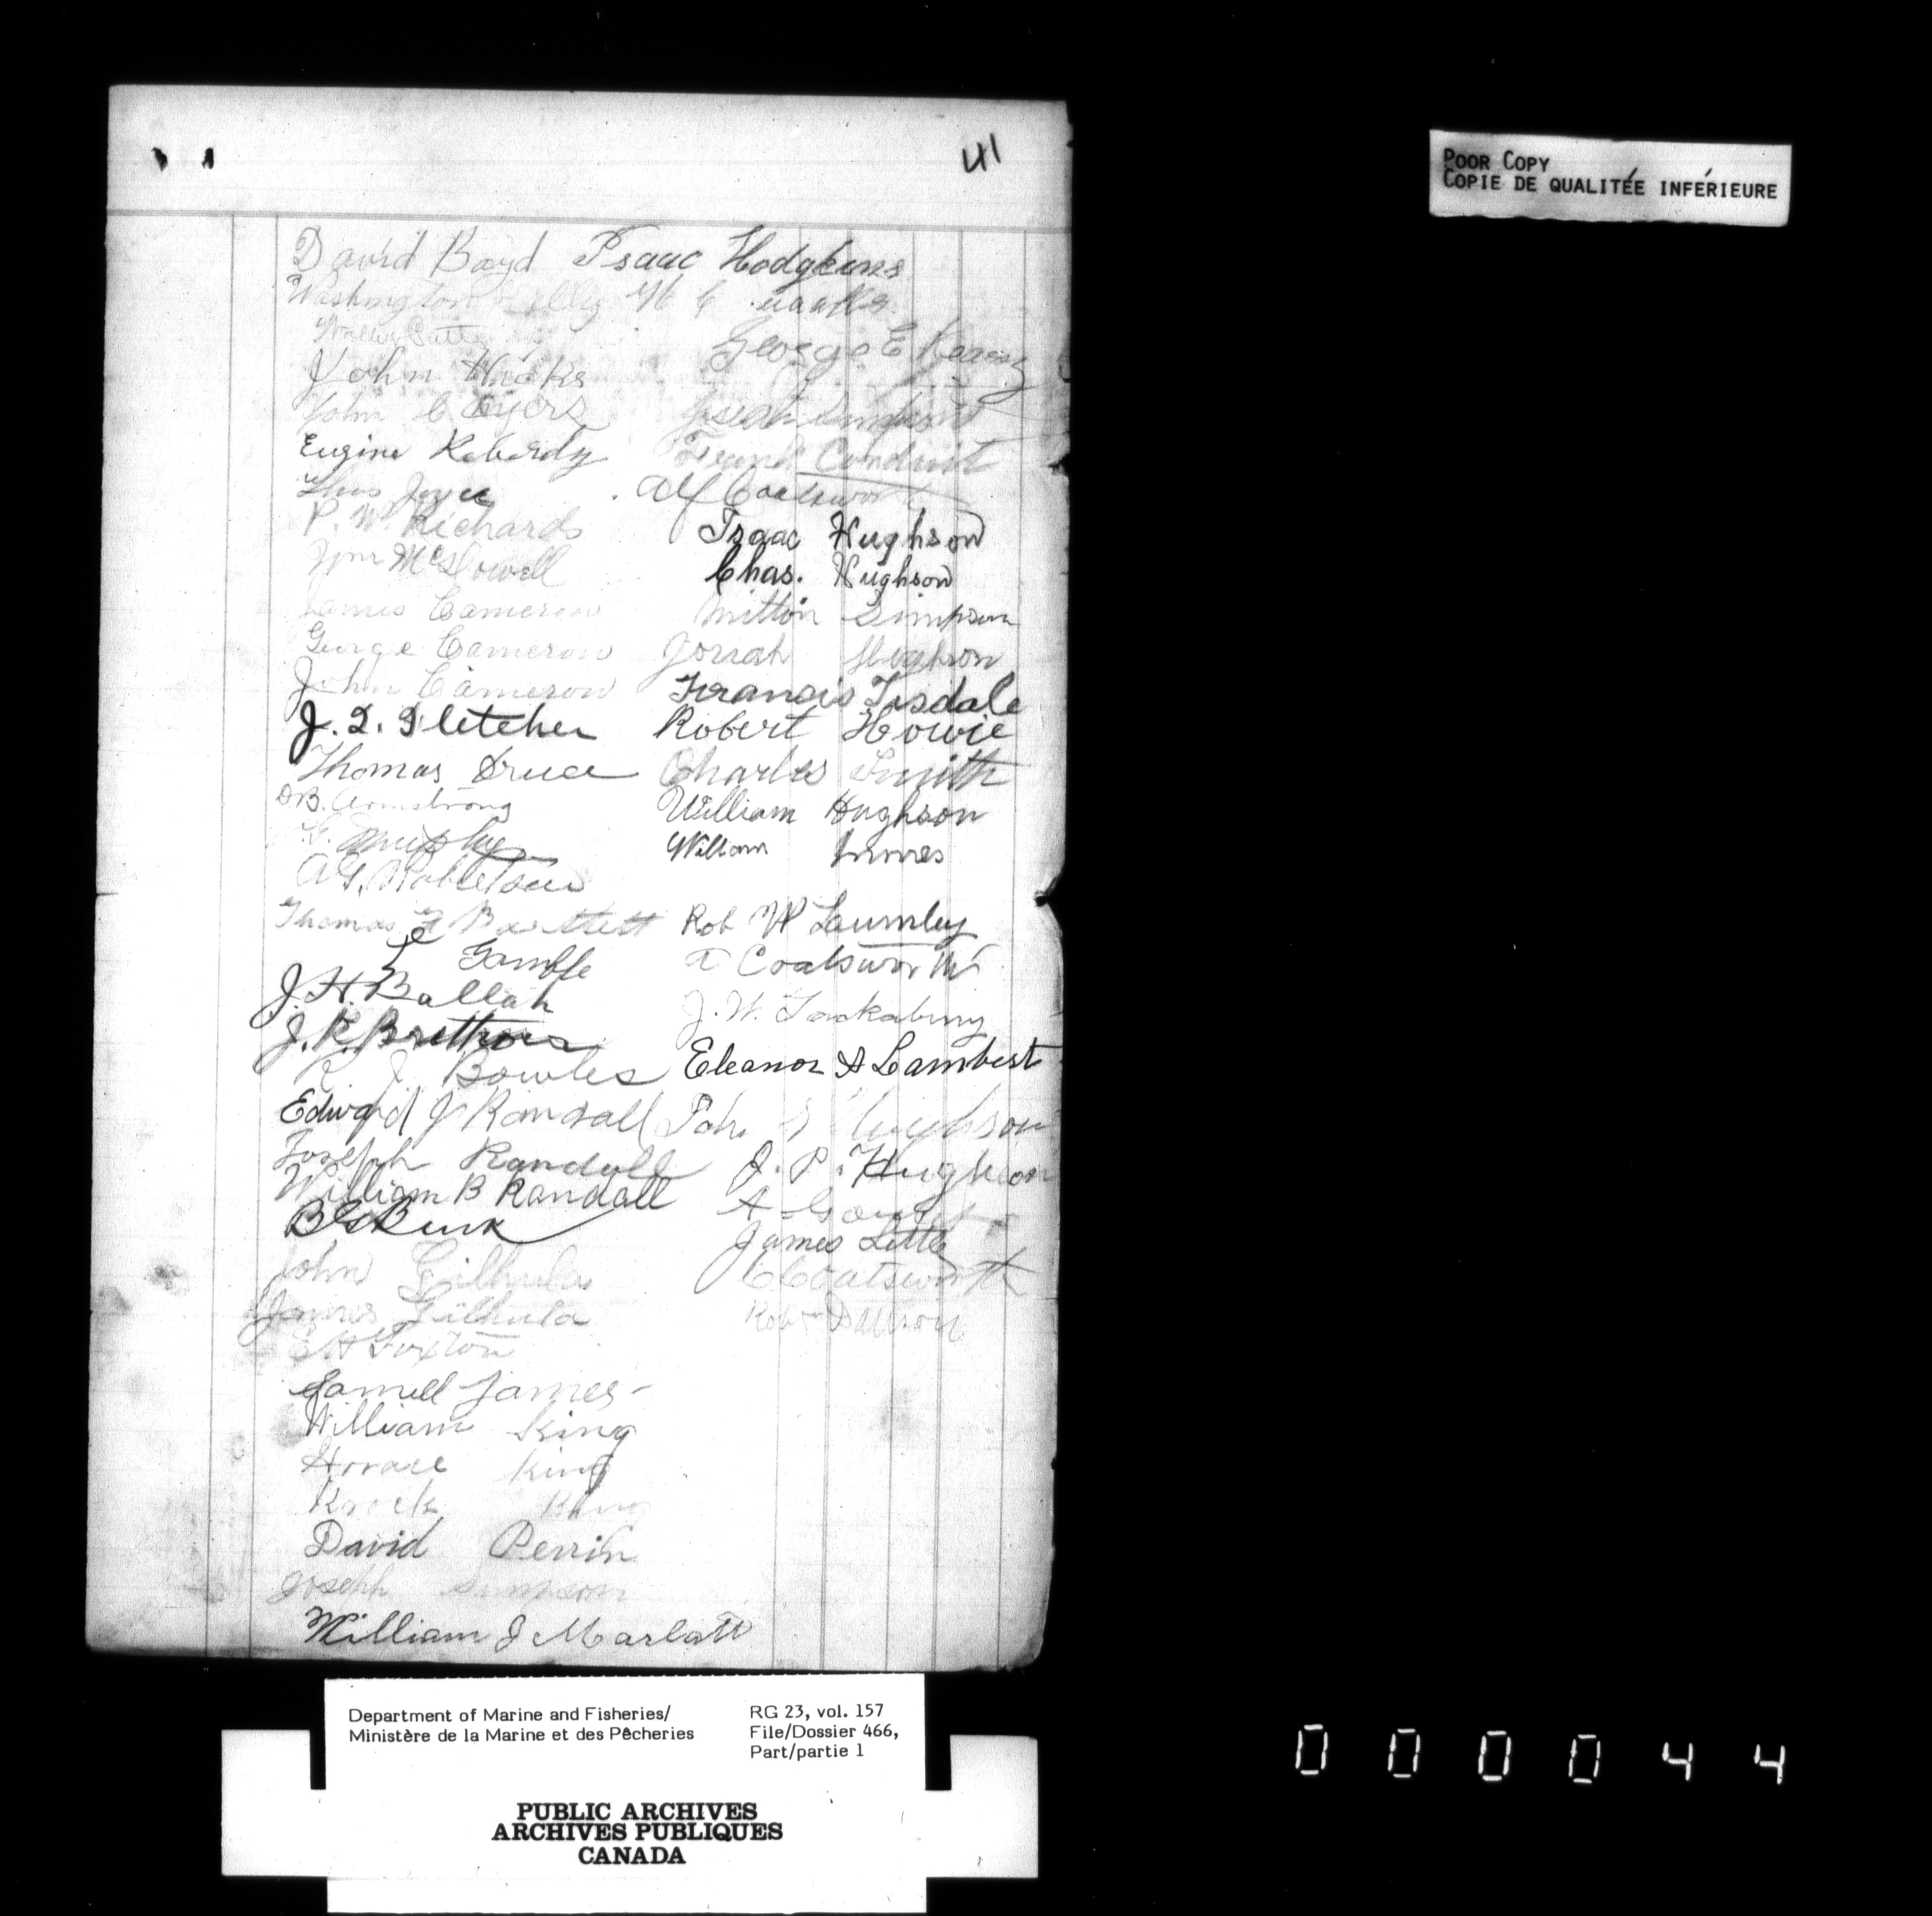 41
POOR COPY
COPIE DE QUALITÉE INFÉRIEURE
David Boyd Isaac Hodgkins
Washington
George E
John Hicks
John C Ayers
Joseph Simpson
Eugine
Frank Conduit
Thos Joyce
Alf Coatsworth
P. W. Richards
Isaac Hughson
Wm McDowell
Chas. Hughson
James Cameron
Milton Simpson
George Cameron
Josiah Hughson
John Cameron
Francis Tisdale
J. D. Fletcher
Robert Howie
Thomas Druce
Charles Smith
D B. Armstrong
William Hughson
Murphy
William Innes
A G. Robertson
Thomas F Bartlett
Rob W Laumley
Gamble
A Coatsworth
J. H. Ballah
J. W. Tackabury
J. R. Brethour
R. J. Bowles
Eleanor A Lambert
Edward J Randall
John S Hughson
Joseph Randall
J. P. Hughson
William B Randall
A
B G Burk
James Little
John Gilhula
C Coatsworth
James Gilhula
Robt
E A Foxton
Samuell James
William King
Horace King
King
David Perrin
Joseph Simpson
William J Marlatt
Department of Marine and Fisheries/
Ministère de la Marine et des Pêcheries
RG 23, vol. 157
File/Dossier 466,
Part/partie 1
PUBLIC ARCHIVES
ARCHIVES PUBLIQUES
CANADA
000044